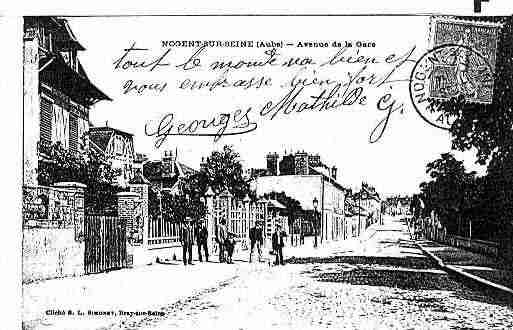 NOGENT-SUR-SEINE (Aube) — Avenue de la Gare
tout le monde va bien et
vous embrasse bien fort
Georges Mathilde G.
NOG
Cliché S. L. Simonet, Bray-sur-Seine